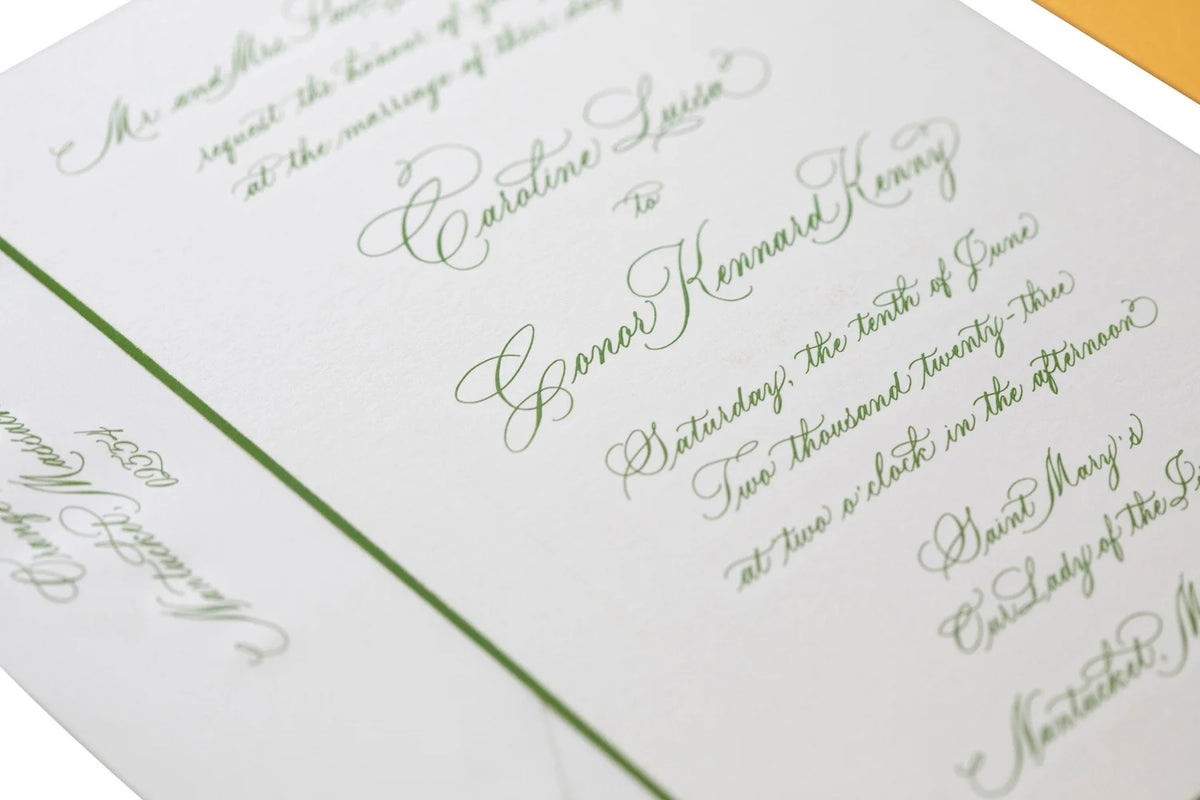 Mr. and Mrs.
request the honour of
at the marriage of their daughter
Caroline Luisa
to
Conor Kennard Kenny
Saturday, the tenth of June
Two thousand twenty-three
at two o'clock in the afternoon
Saint Mary's
Our Lady of the
Nantucket,
Orange
Nantucket,
02554